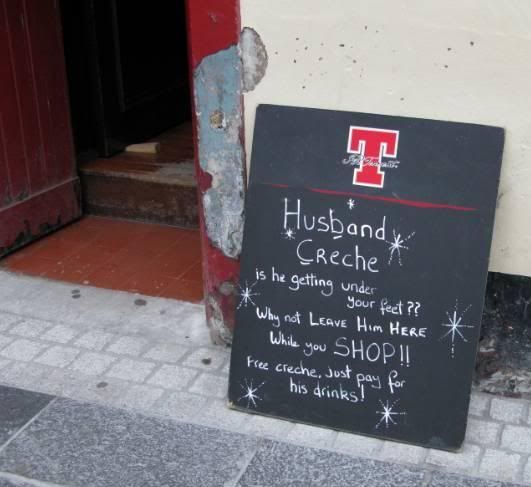 T
Husband
Creche
is he getting under
your feet??
Why not LEAVE HIM HERE
While you SHOP!!
Free creche, Just pay for
his drinks!